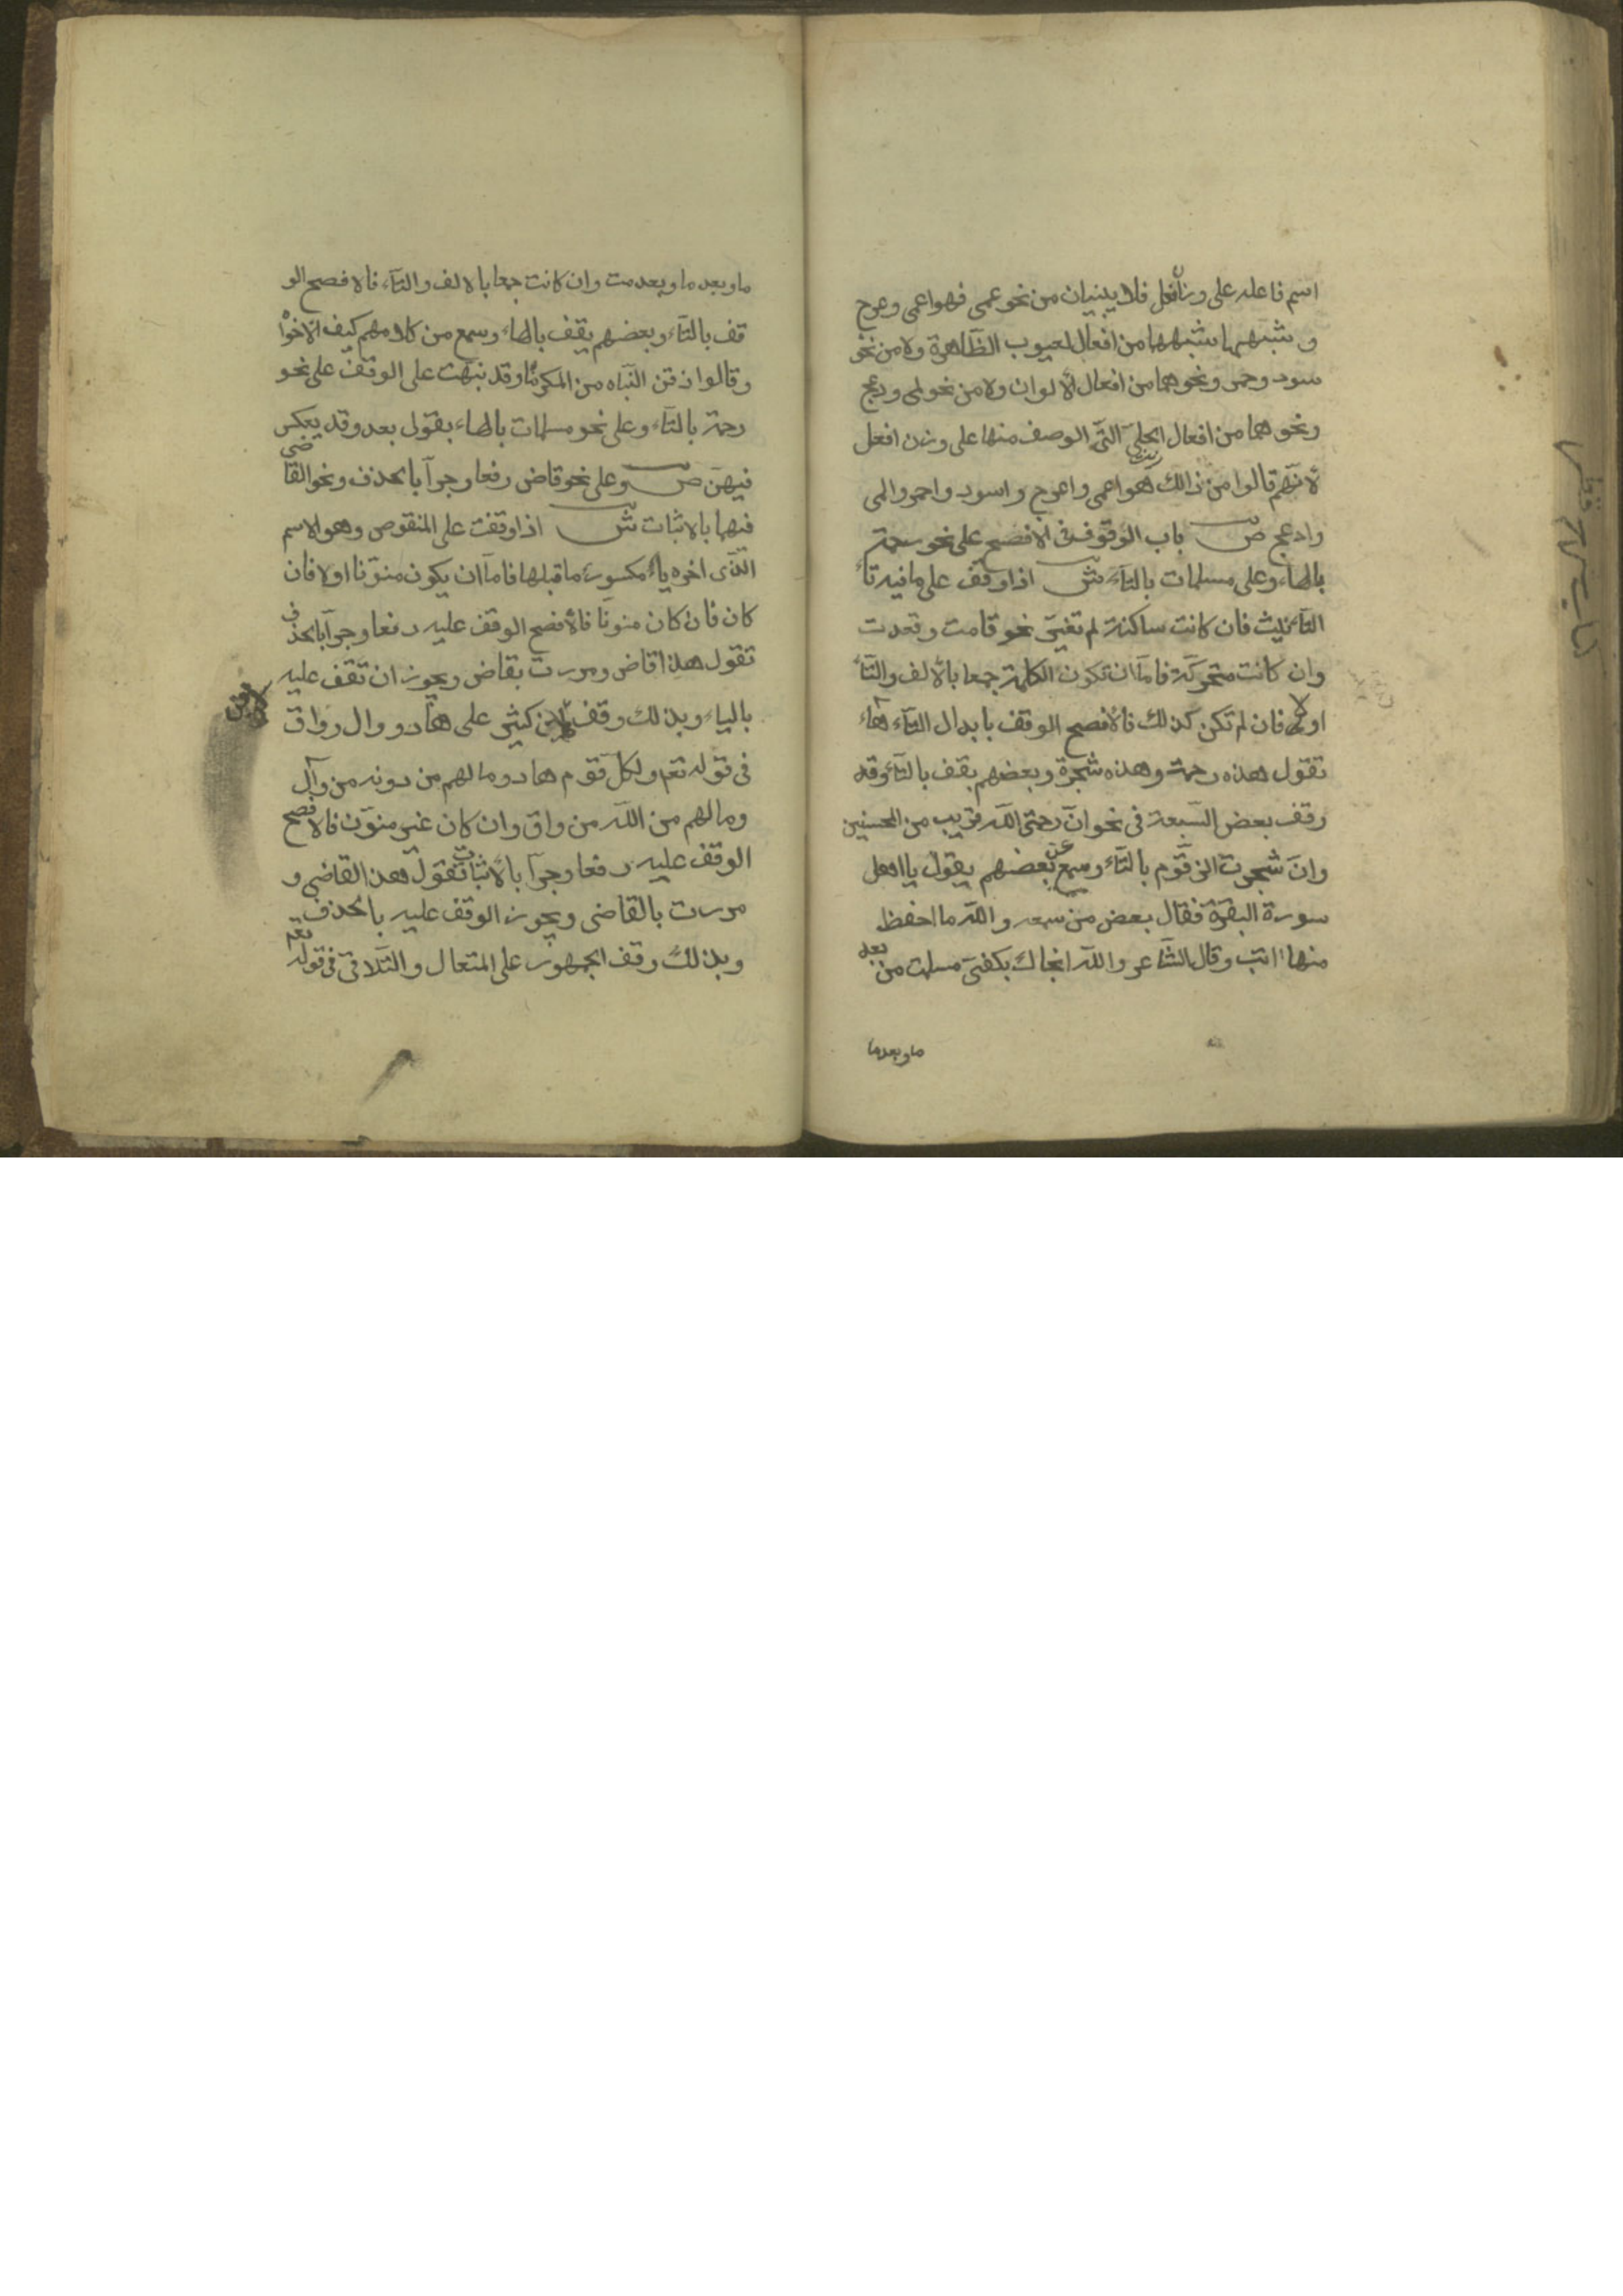 اسم فاعله على وزن أفعل فلا يبنيان من نحو عمى فهو اعمى وعرج
و شبههما شبههما من افعال لعيوب الظّاهرة ولا من نحو
سود وحمر ونحوهما من افعال الألوان ولا من نحو لمى ودعج
ونحو هما من افعال الحلى التّى الوصف منها على وزن افعل
لأنّهم قالوا من ذالك هو اعمى واعرج واسود واحمر والمى
وادعج ص باب الوقوف فى الأفصح على نحو رحمة
بالهاء وعلى مسلمات بالتاء ش اذا وقف على ما فيه تاء
التانيث فان كانت ساكنة لم تغيّر نحو قامت وقعدت
وان كانت متحركة فامّا ان تكون الكلمة جمعا بالألف والتّاء
اولا فان لم تكن كذلك فالأفصح الوقف بابدال التّاء هاء
تقول هذه رحمة وهذه شجرة وبعضهم يقف بالتاء وقد
وقف بعض السّبعة فى نحو انّ رحمة اللّه قريب من المحسنين
وانّ شجرت الزقّوم بالتاء وسمع عن بعضهم يقول يا اهل
سورة البقرة فقال بعض من سمعه واللّه ما احفظ
منها اية وقال الشّاعر واللّه انجاك بكفىّ مسلمت من بعد
ماوبعدما
ما وبعد ما وبعدمت وان كانت جمعا بالالف والتّاء فالافصح الو
قف بالتّاء وبعضهم يقف بالهاء وسمع من كلامهم كيف الاخوا
وقالوا دفن البناه من المكرماه وقد نبهت على الوقف على نحو
رحمة بالتّاء وعلى نحو مسلمات بالهاء بقولى بعد وقد يعكس
فيهنّ ص وعلى نحو قاض رفعا وجرّا بالحذف ونحو القاضى
فيها بالاثبات ش اذا وقفت على المنقوص وهو الاسم
الّذى اخره ياء مكسور ما قبلها فامّا ان يكون منوّنا اولا فان
كان فان كان منونّا فالأفصح الوقف عليه رفعا وجرّا بالحذف
تقول هذا قاض ومررت بقاض ويجوز ان تقف عليه
بالياء وبذلك وقف ابن كثير على هاد ووال وواق
فى قوله تعم ولكلّ قوم هاد وما لهم من دونه من وال
وما لهم من اللّه من واق وان كان غير منوّن فالافصح
الوقف عليه رفعا وجرّا بالأثبات تقول هذ القاضى و
مررت بالقاضى ويجوز الوقف عليه بالحذف
وبذلك وقف الجمهور على المتعال والتّلاق فى قوله تعم